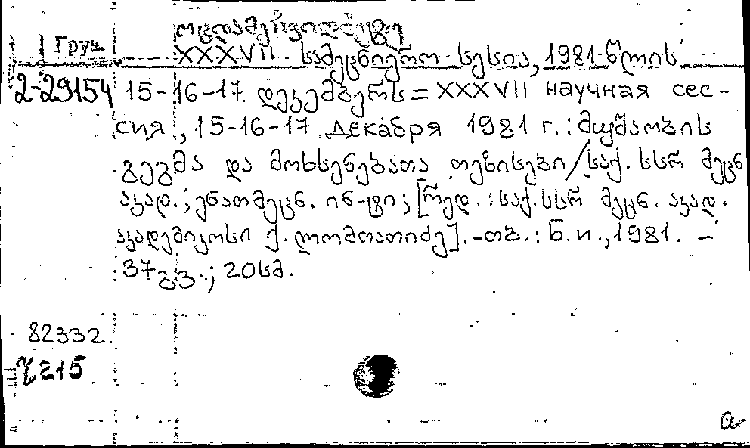 ოცდამეჩვიდმეტე
Груз
XXXVII სამეცნიერო სესია, 1981 წლის
2-29154 15-16-17 დეკემბერს = XXXVII научная сес-
сия, 15-16-17 декабря 1981 г.: მუშაობის
გეგმა და მოხსენებათა თეზისები/საქ. სსრ მეცნ
აკად.; ენათმეცნ. ინ-ტი; [რედ.: საქ. სსრ მეცნ. აკად.
აკადემიკოსი ქ. ლომთათიძე]. - თბ.: ნ. ი., 1981. -
37 გვ.; 20 სმ.
82332
215
a